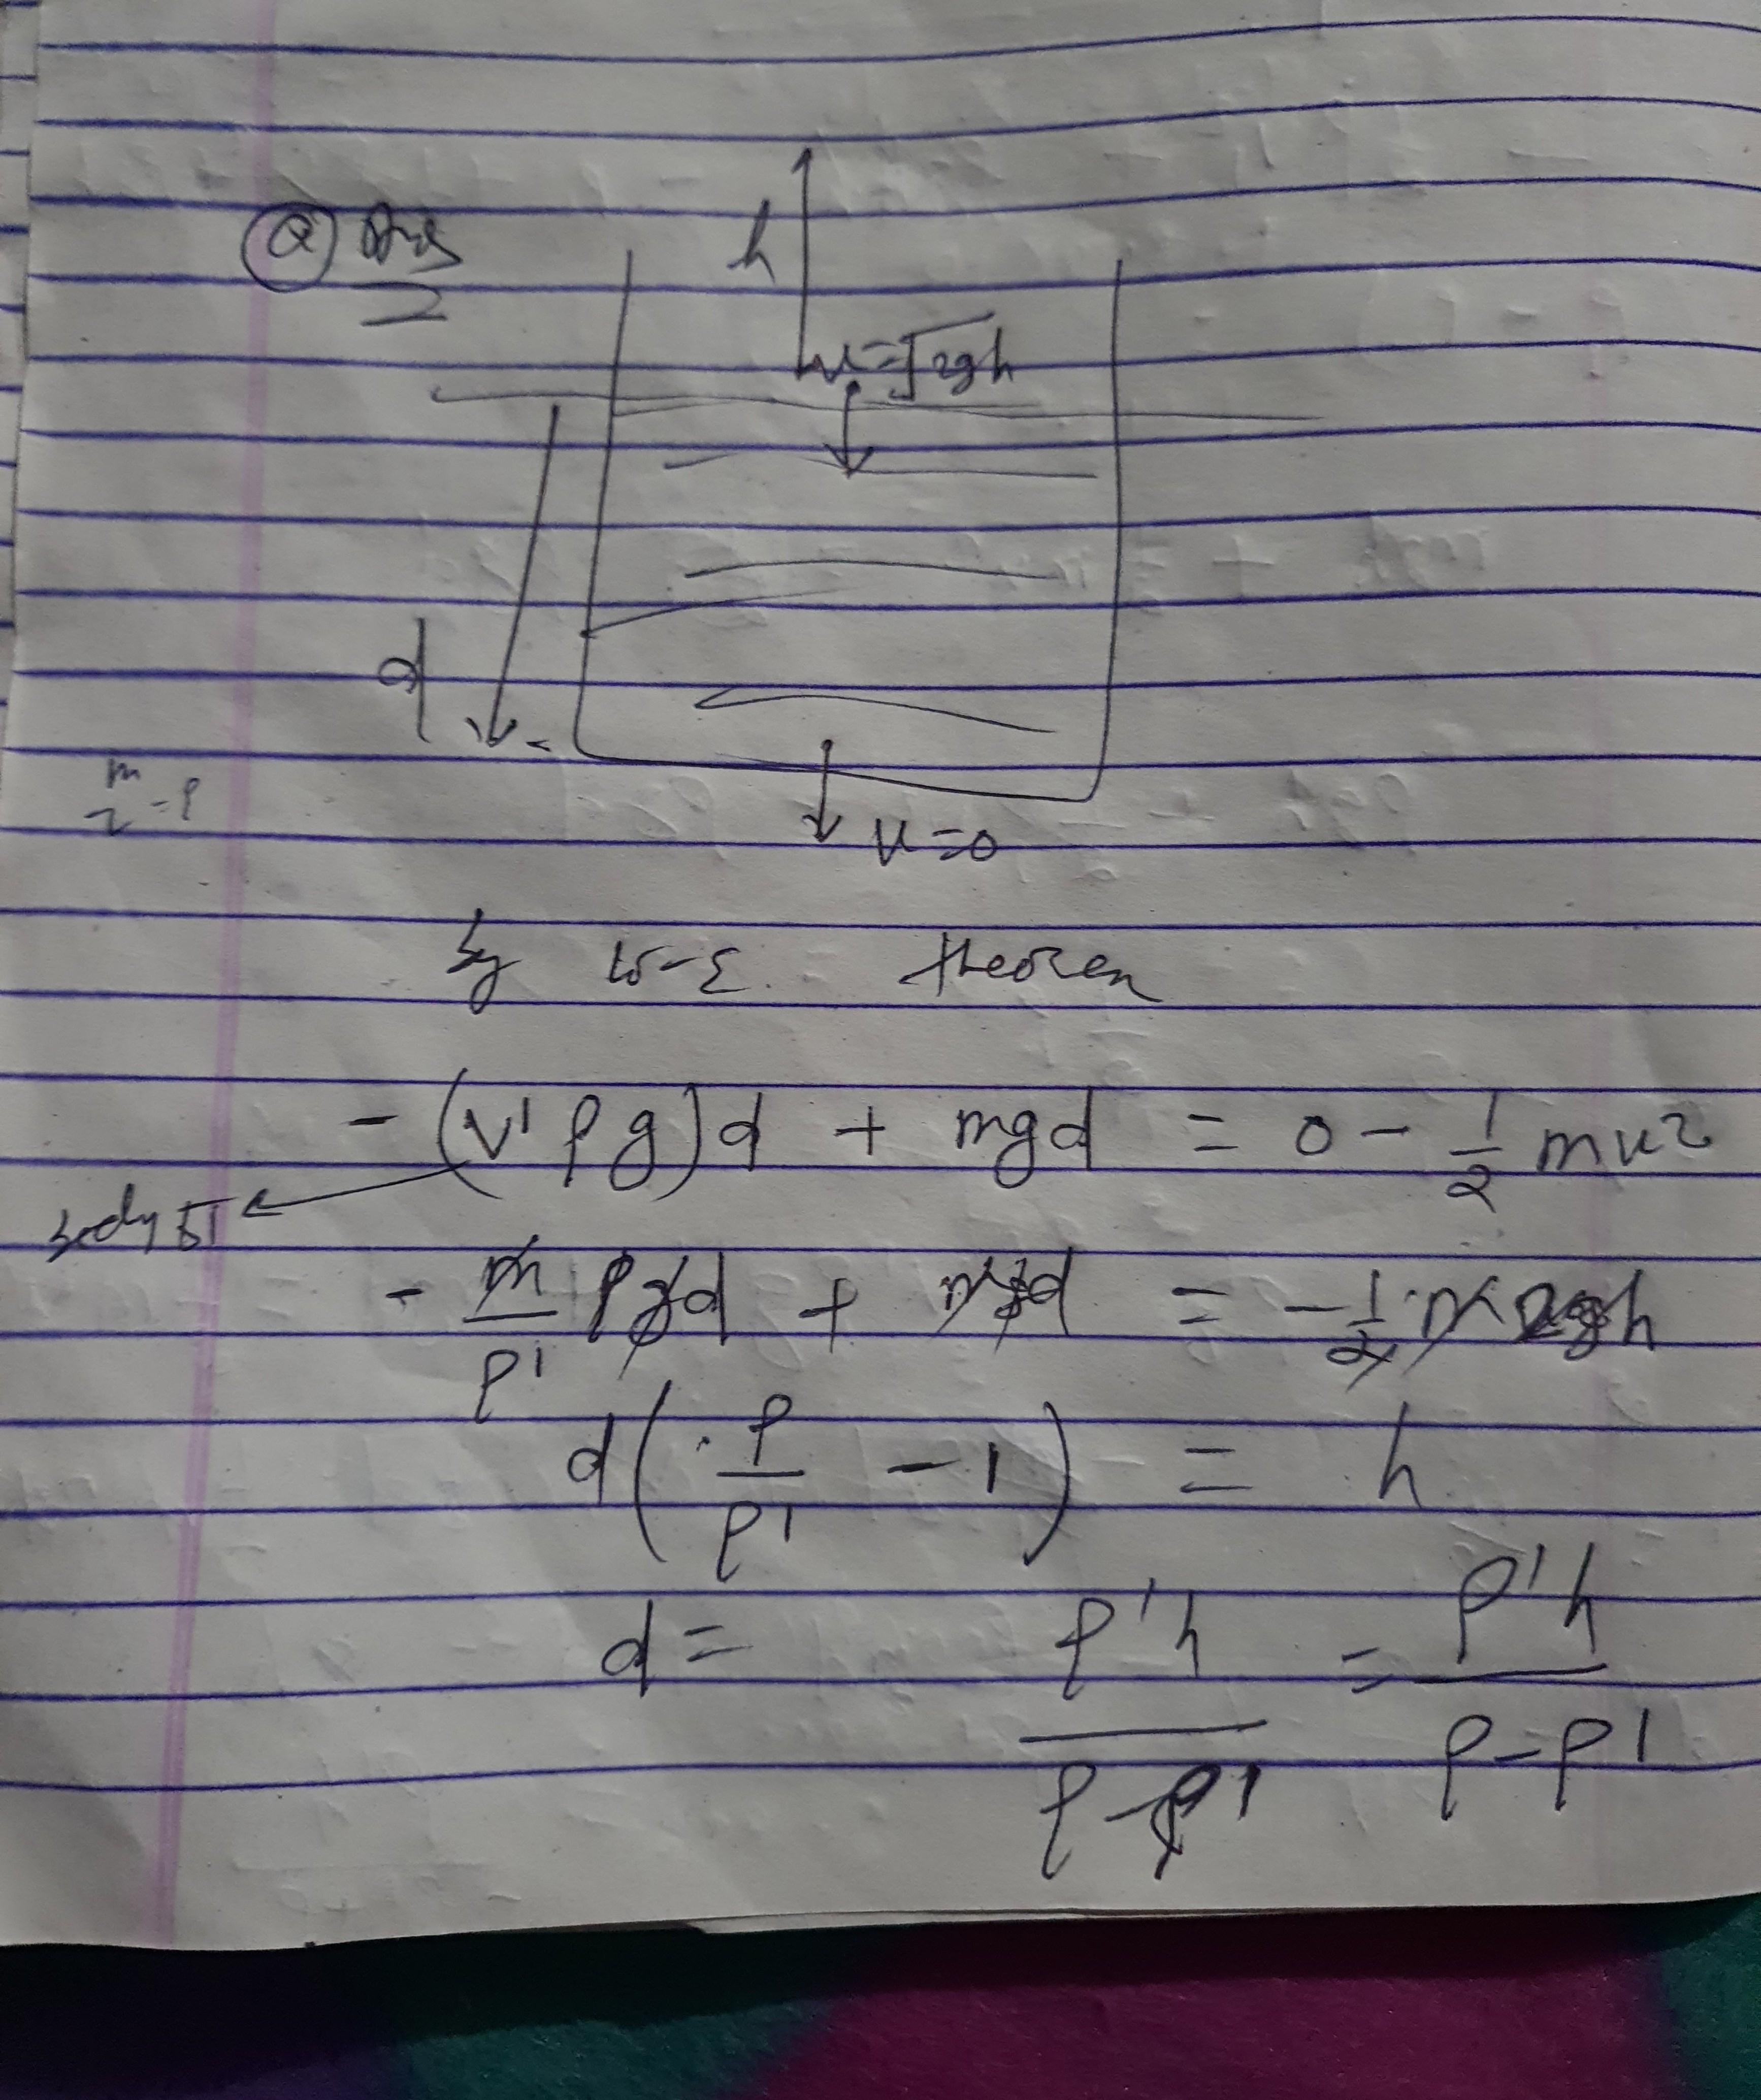 Q Ans
h
u=√2gh
d
m/v=ρ
u=0
by W-E. theorem
-(V'ρg)d + mgd = 0 - 1/2 mu²
body का
- m/ρ' ρgd + mgd = - 1/2 · m × 2gh
d(ρ/ρ' - 1) = h
d = ρ'h/ρ-ρ' = ρ'h/ρ-ρ'